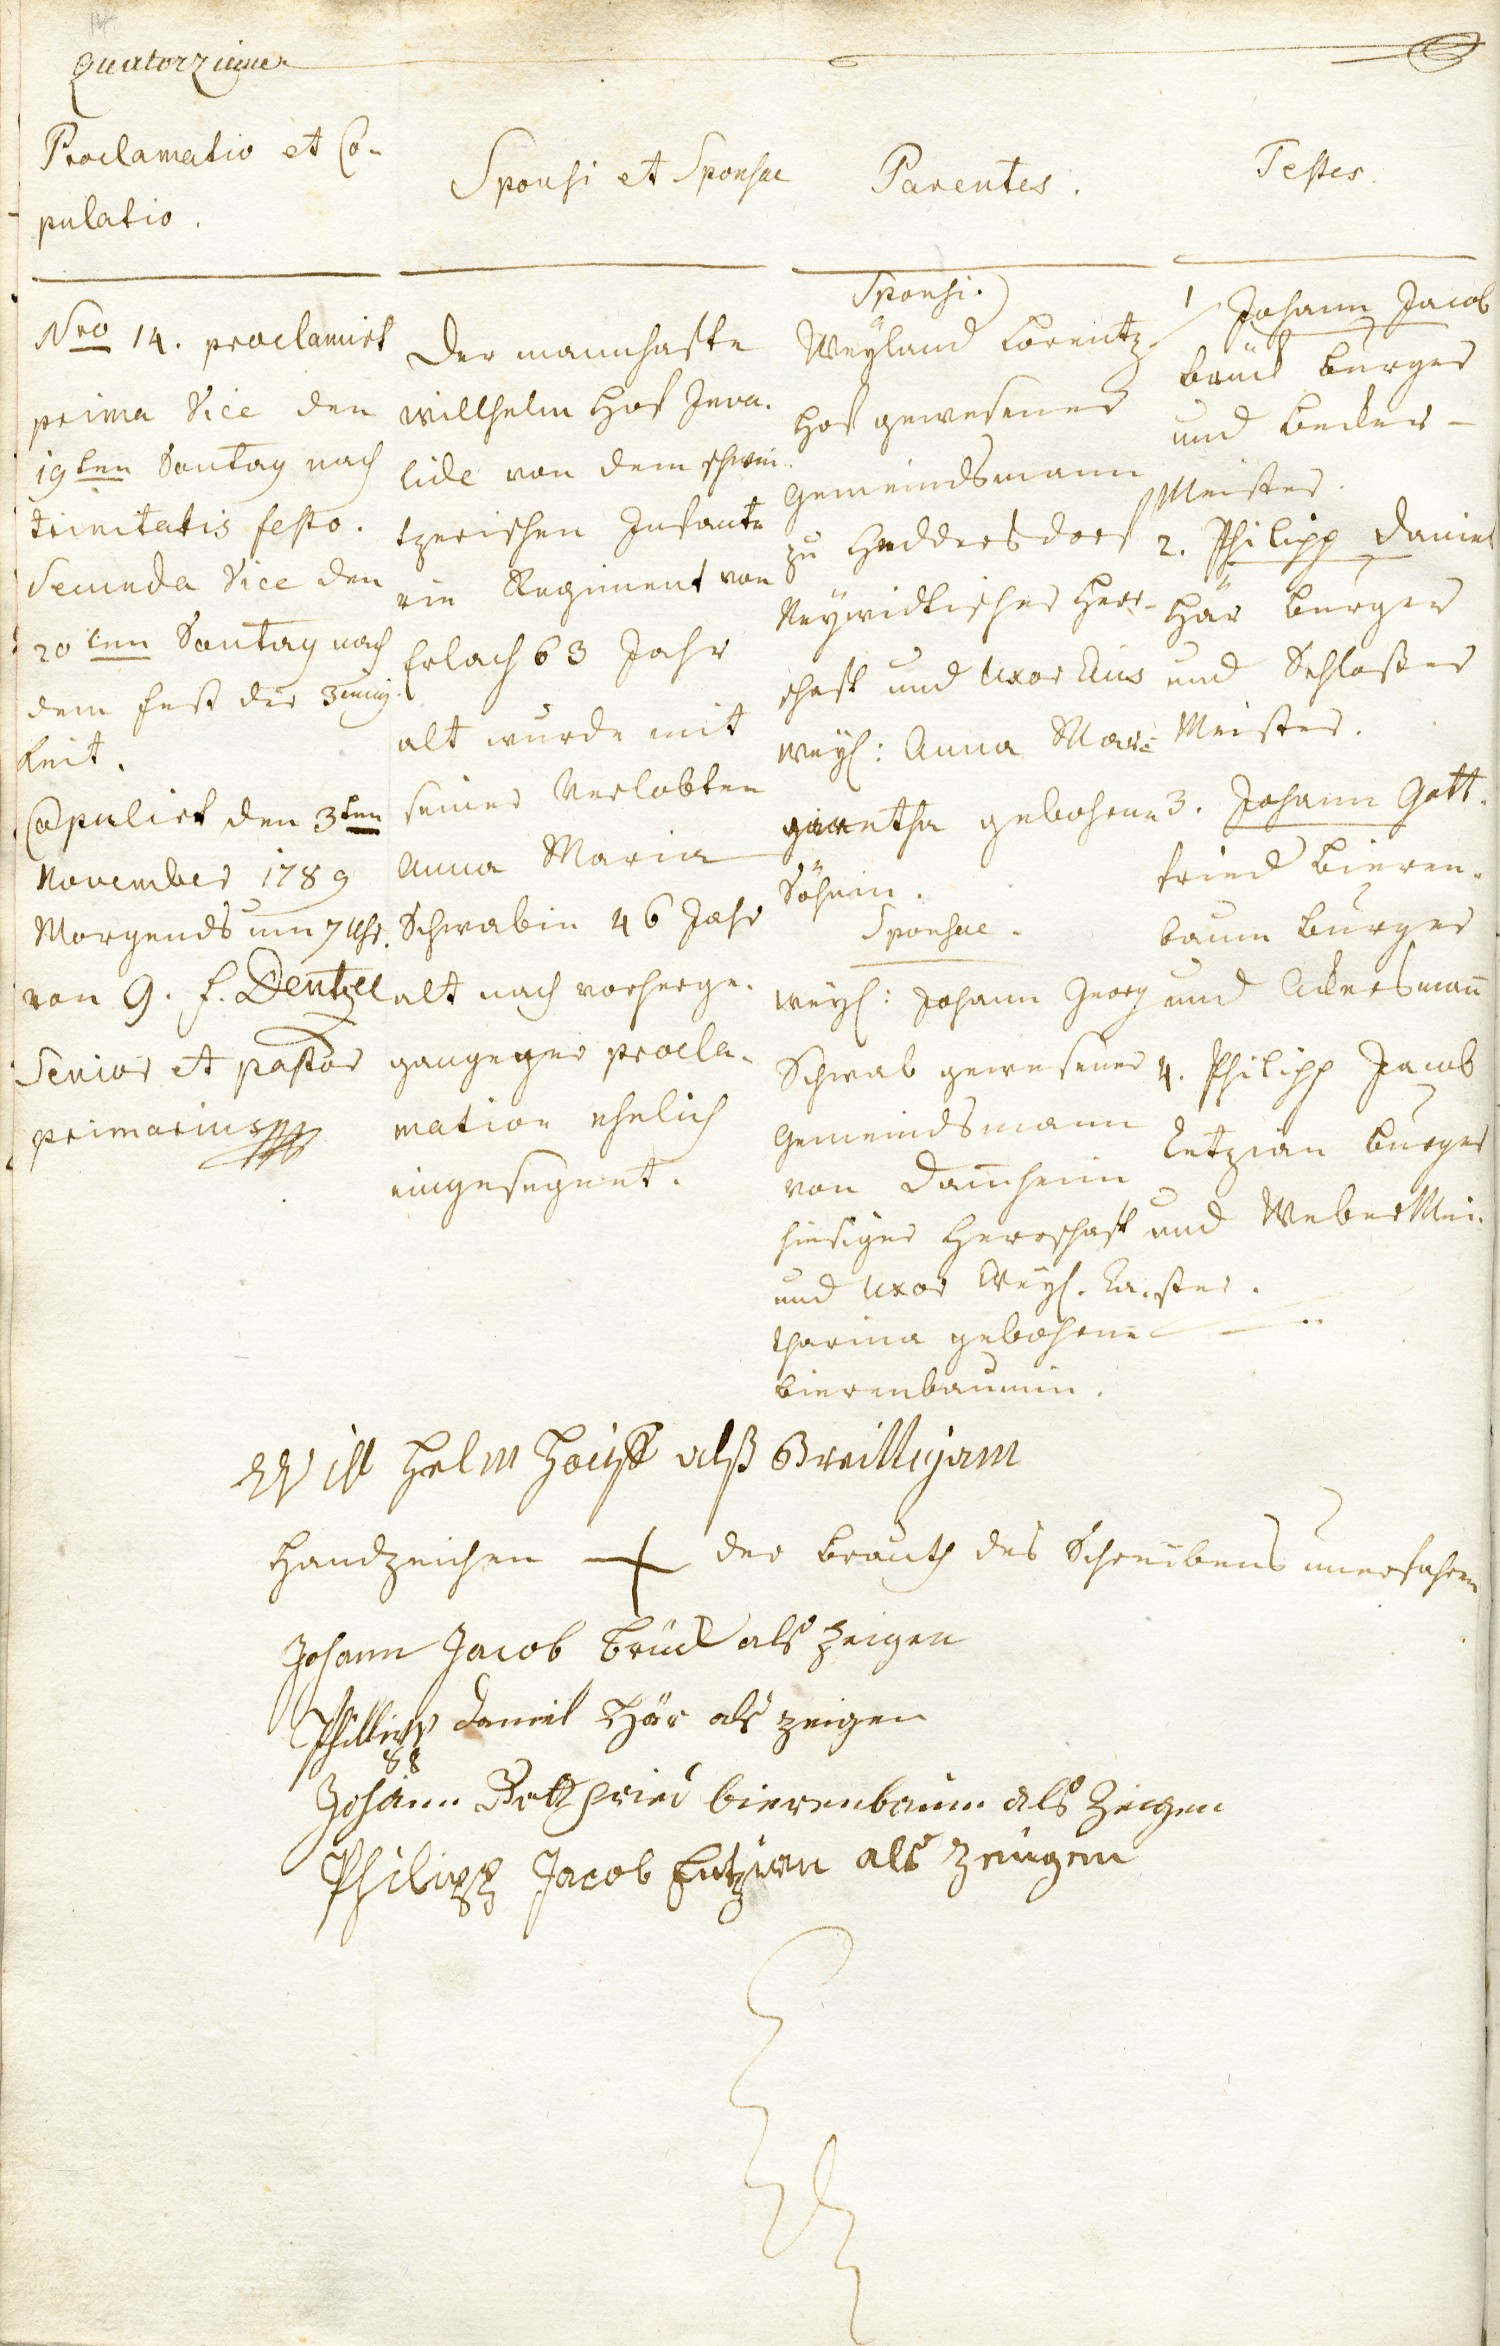 Quatorzieme
Proclamatio et Co-
pulatio.
Nro 14. proclamirt
prima Vice den
19ten Sontag nach
trinitatis festo.
Secunda Vice den
20ten Sontag nach
dem fest der 3einig
keit.
Copulirt den 3ten
November 1789
Morgends um 7 Uhr.
von G. f. Dentzel
Senior et pastor
primarius
Sponsi et Sponsae
Der mannhafte
Willhelm Hof Inva-
lide von dem schwei-
tzerischen Infante
rie Regiment von
Erlach 63 Jahr
alt wurde mit
seiner Verlobten
Anna Maria
Schwabin 46 Jahr
alt nach vorherge-
gangener procla-
mation ehelich
eingesegnet.
Parentes.
Sponsi.
Weyland Lorentz
Hof gewesener
Gemeindsmann
zu Heddersdorf
Neywidtischer Herr-
schaft und Uxor Eius
weyl: Anna Mar-
garetha gebohrne
Söhnin.
Sponsae.
weyl: Johann Georg
Schwab gewesener
Gemeindsmann
von Dam̄heim
hiesiger Herrschaft
und Uxor Weyl. Ca-
tharina gebohrne
Bierenbaumin.
Testes.
1 Johann Jacob
Brück Burger
und Becker-
Meister.
2. Philipp Daniel
Här Burger
und Schloßer
Meister.
3. Johann Gott-
fried Bieren-
baum Burger
und Ackersman̄
4. Philipp Jacob
Entzian Burger
und Weber Mei-
ster.
Willhelm Hoff alß Breittigam
Handzeichen + der Brauth des Schreibens unerfahren
Johann Jacob Brück als Zeigen
Phillipp Daniel Här als zeigen
Johann Gottfried bierenbaum als Zeigen
Philipp Jacob Entzian als zeugen